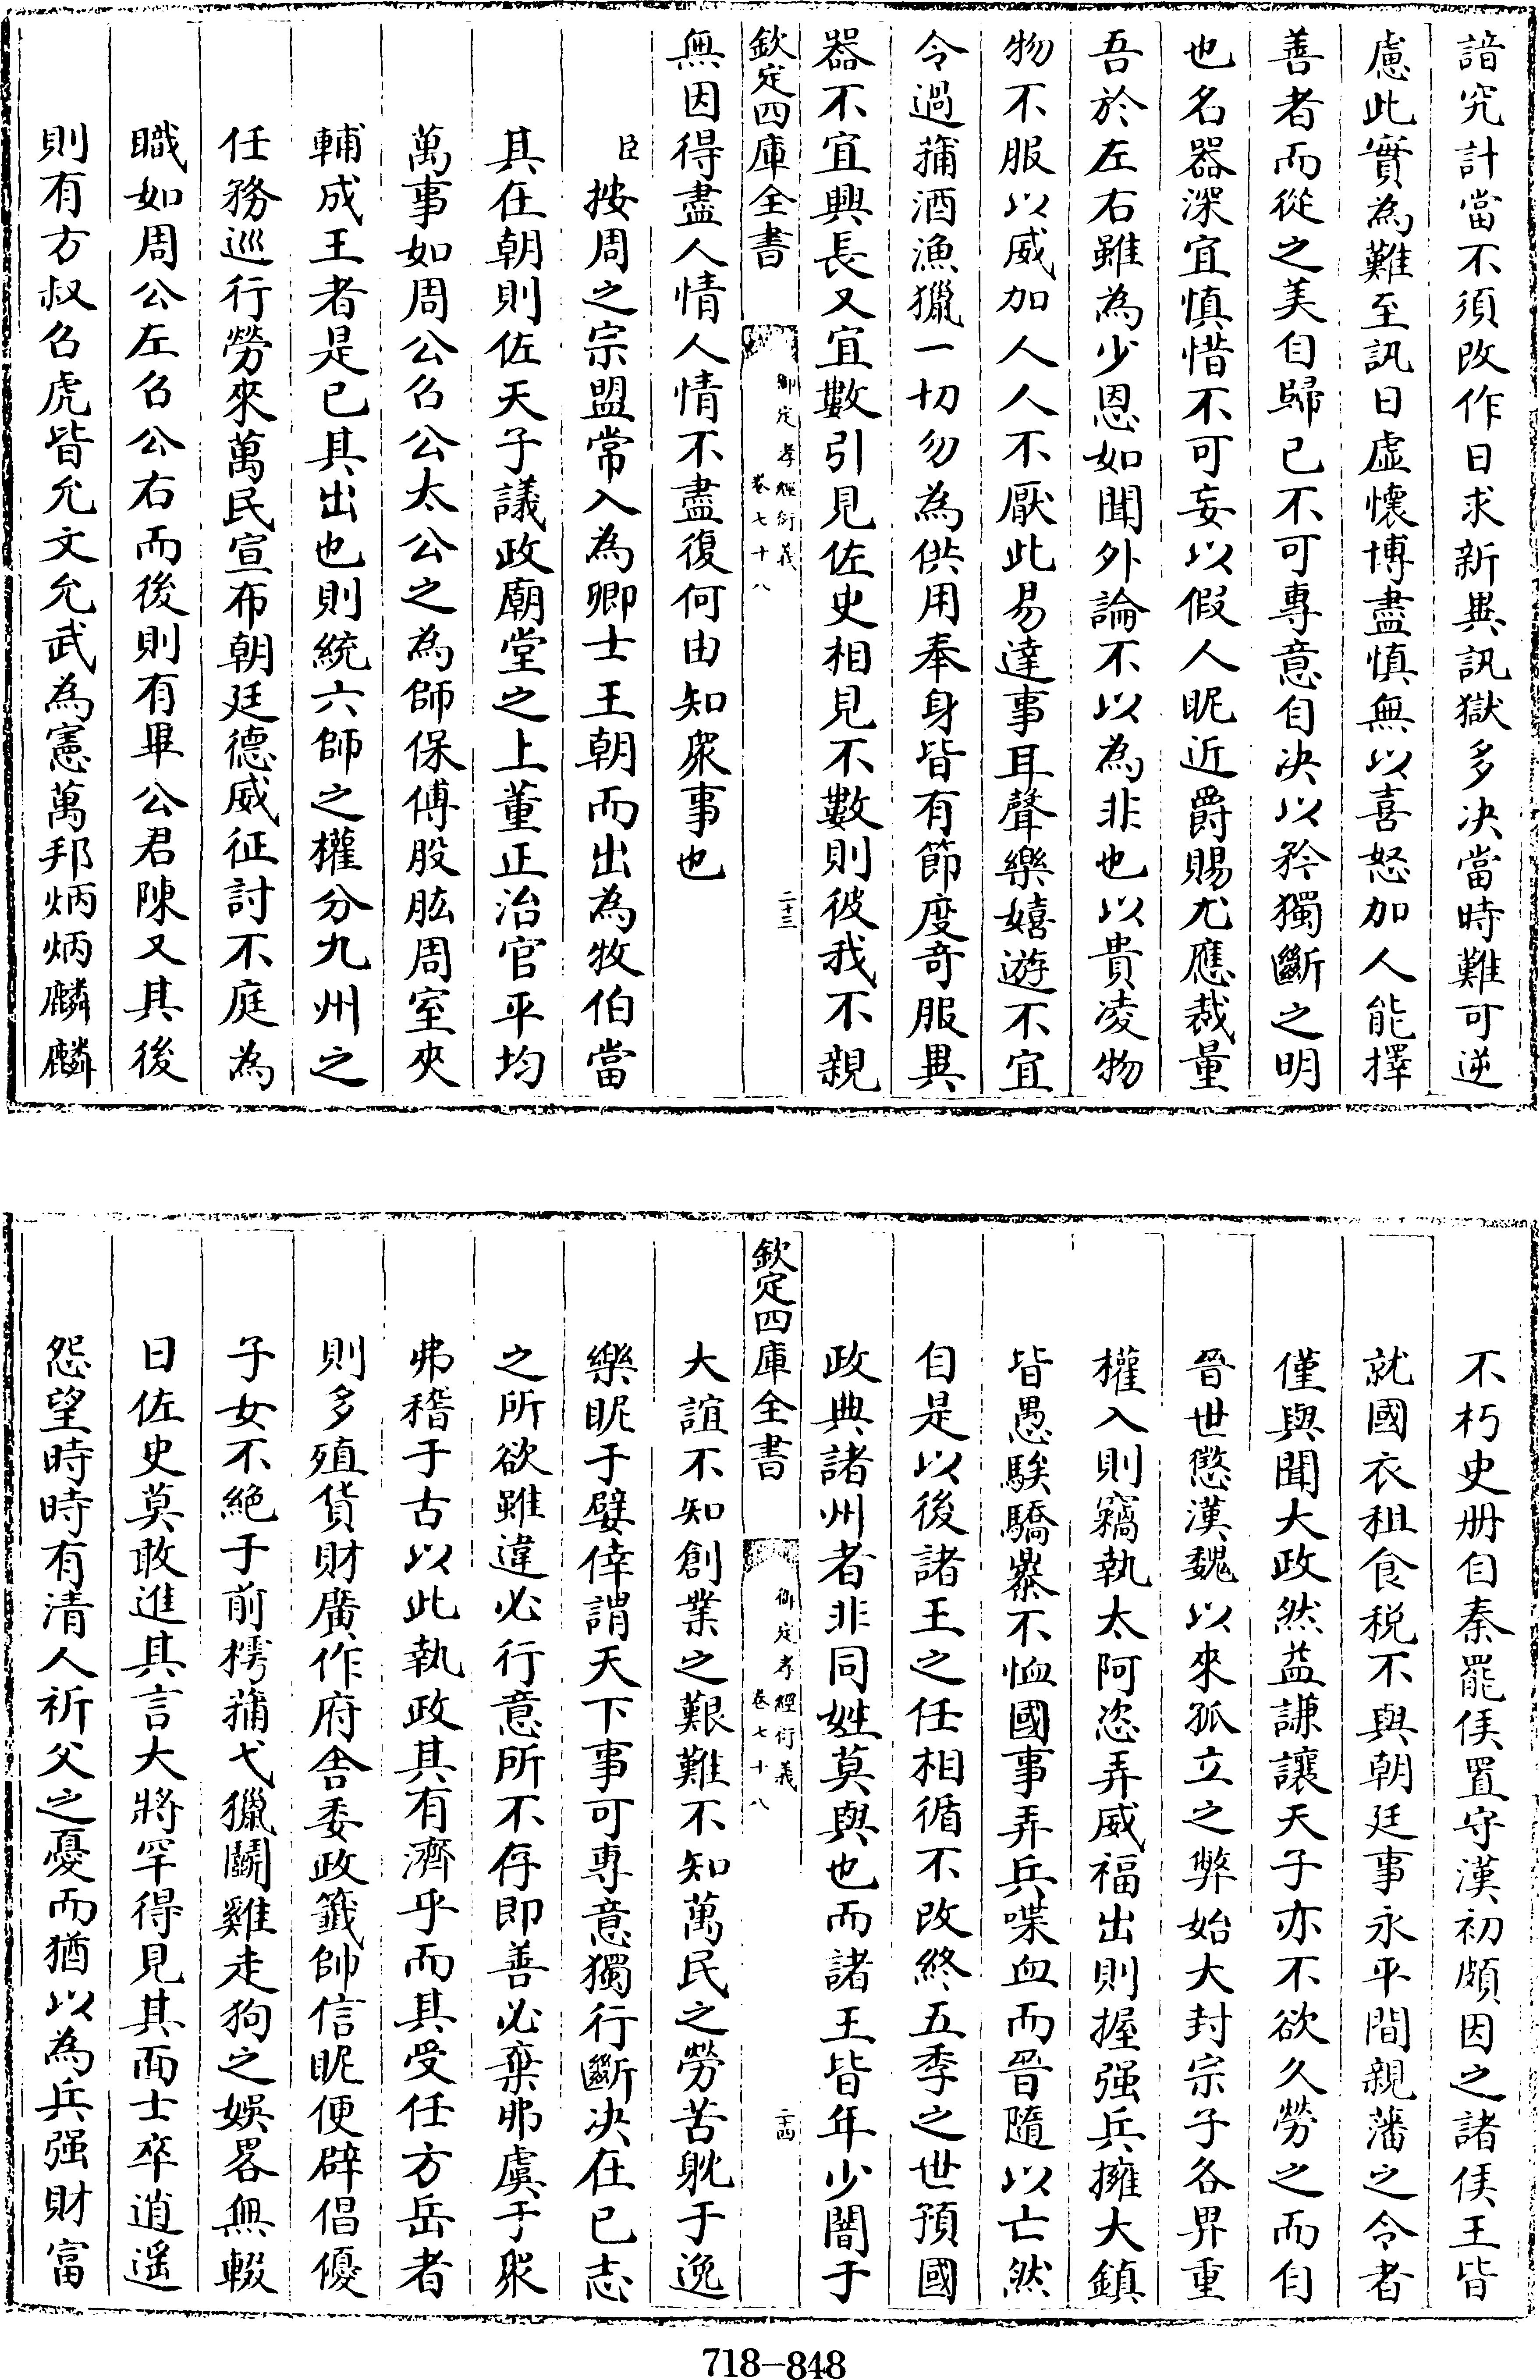 諳究計當不須改作日求新異訊獄多決當時難可逆
慮此實為難至訊日虛懷博盡慎無以喜怒加人能擇
善者而從之美自歸己不可專意自決以矜獨斷之明
也名器深宜慎惜不可妄以假人昵近爵賜尤應裁量
吾於左右雖為少恩如聞外論不以為非也以貴凌物
物不服以威加人人不厭此易達事耳聲樂嬉遊不宜
令過蒱酒漁獵一切勿為供用奉身皆有節度奇服異
器不宜興長又宜數引見佐史相見不數則彼我不親
欽定四庫全書 御定孝經衍義 卷七十八 二十三
無因得盡人情人情不盡復何由知衆事也
臣按周之宗盟常入為卿士王朝而出為牧伯當
其在朝則佐天子議政廟堂之上董正治官平均
萬事如周公召公太公之為師保傅股肱周室夾
輔成王者是已其出也則統六師之權分九州之
任務巡行勞來萬民宣布朝廷德威征討不庭為
職如周公左召公右而後則有畢公君陳又其後
則有方叔召虎皆允文允武為憲萬邦炳炳麟麟
不朽史册自秦罷侯置守漢初頗因之諸侯王皆
就國衣租食税不與朝廷事永平間親藩之令者
僅與聞大政然益謙讓天子亦不欲久勞之而自
晉世懲漢魏以來孤立之弊始大封宗子各畀重
權入則竊執太阿恣弄威福出則握强兵擁大鎮
皆愚騃驕暴不恤國事弄兵喋血而晉隨以亡然
自是以後諸王之任相循不改終五季之世預國
政典諸州者非同姓莫與也而諸王皆年少闇于
欽定四庫全書 御定孝經衍義 卷七十八 二十四
大誼不知創業之艱難不知萬民之勞苦躭于逸
樂昵于嬖倖謂天下事可專意獨行斷决在已志
之所欲雖違必行意所不存即善必棄弗虞于衆
弗稽于古以此執政其有濟乎而其受任方岳者
則多殖貨財廣作府舍委政籤帥信昵便辟倡優
子女不絶于前樗蒱弋獵鬭雞走狗之娛畧無輟
日佐史莫敢進其言大將罕得見其面士卒逍遥
怨望時時有清人祈父之憂而猶以為兵强財富
718-848